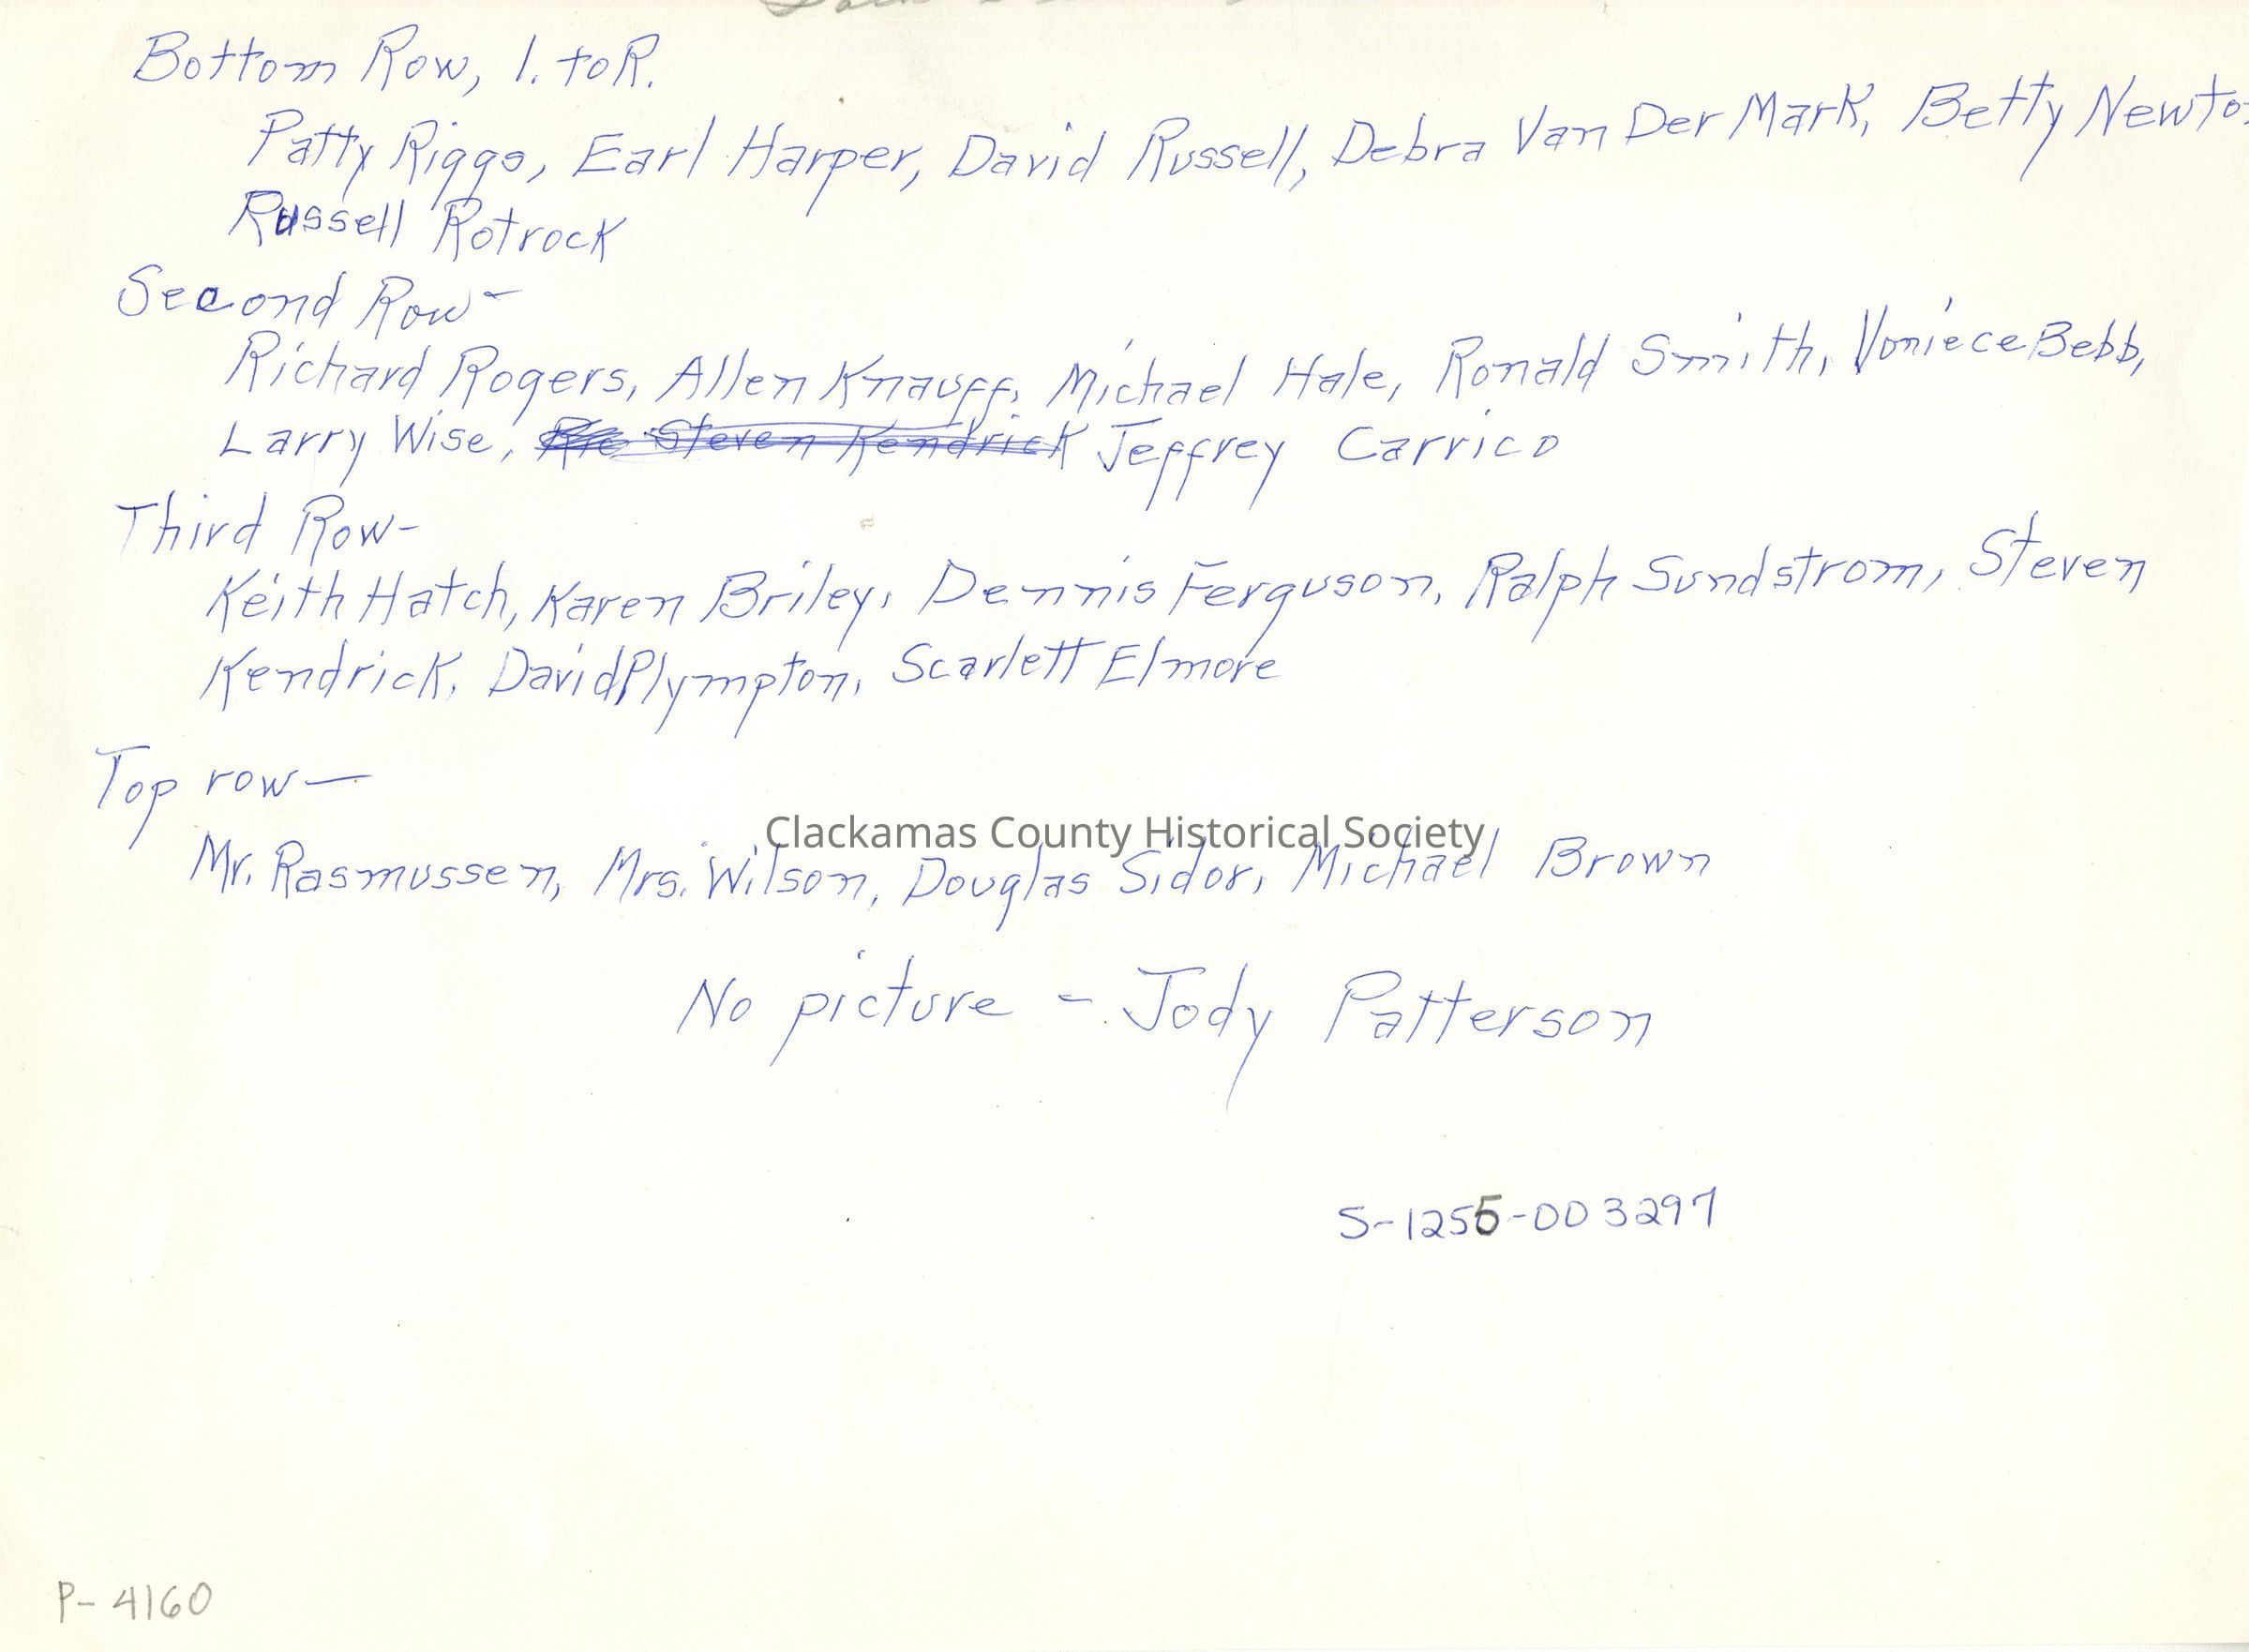 Bottom Row, l. to R.
Patty Riggs, Earl Harper, David Russell, Debra Van Der Mark, Betty Newto
Russell Rotrock
Second Row -
Richard Rogers, Allen Knauff, Michael Hale, Ronald Smith, Voniece Bebb,
Larry Wise, Steven Kendrick Jeffrey Carrico
Third Row -
Keith Hatch, Karen Briley, Dennis Ferguson, Ralph Sundstrom, Steven
Kendrick, David Plympton, Scarlett Elmore
Top row —
Clackamas County Historical Society
Mr. Rasmussen, Mrs. Wilson, Douglas Sidor, Michael Brown
No picture - Jody Patterson
S-1255-003297
P- 4160